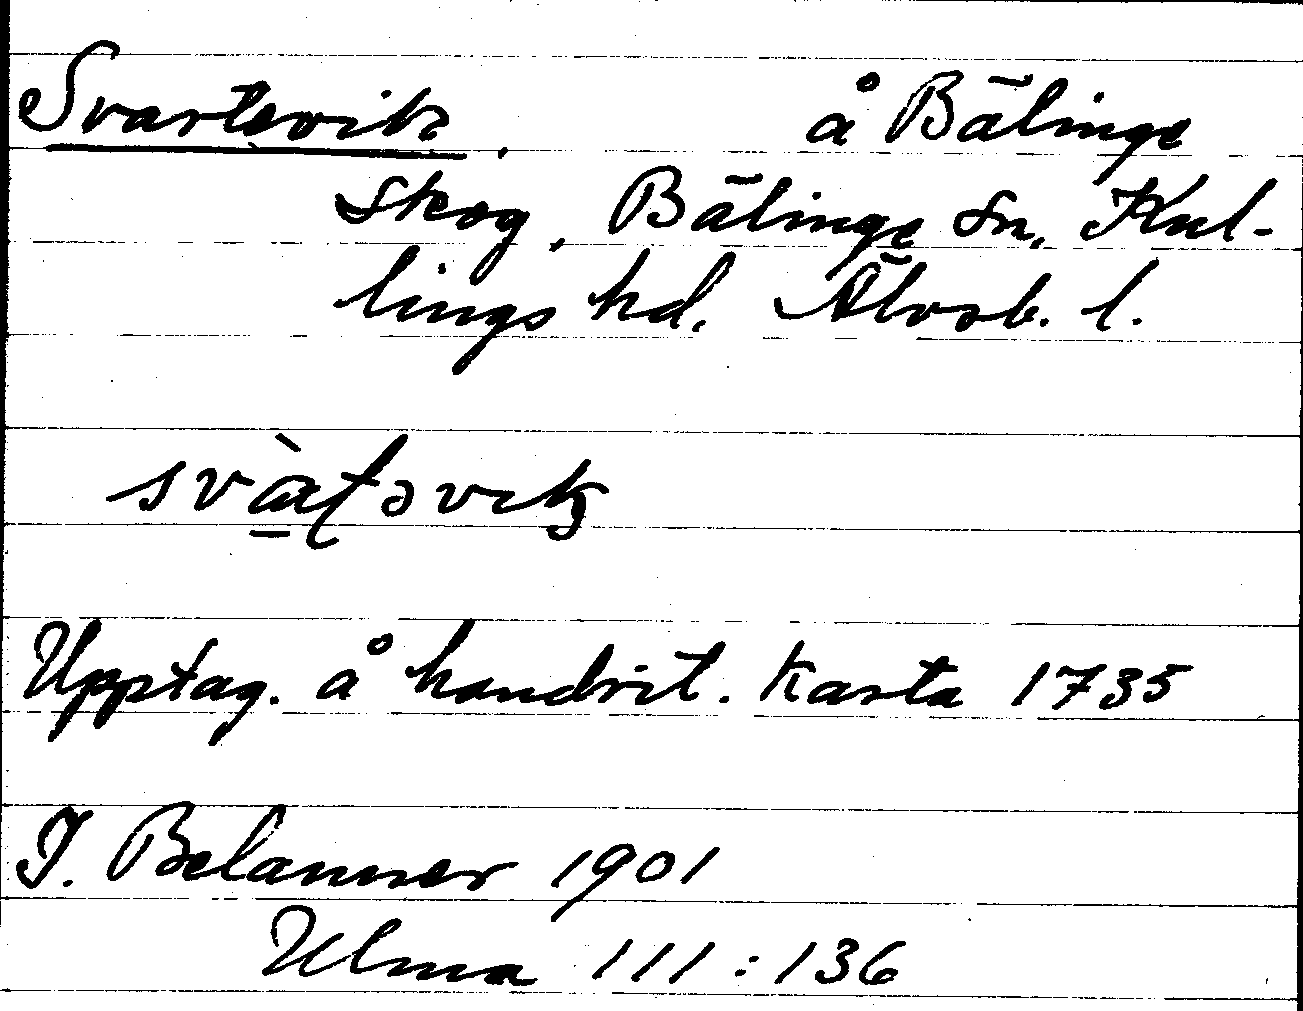 Svartevik, å Bälinge
skog, Bälinge sn, Kul-
lings hd. Älvsb. l.
svàṯəvik
Upptag. å handrit. karta 1735
I. Belanner 1901
Ulma 111:136